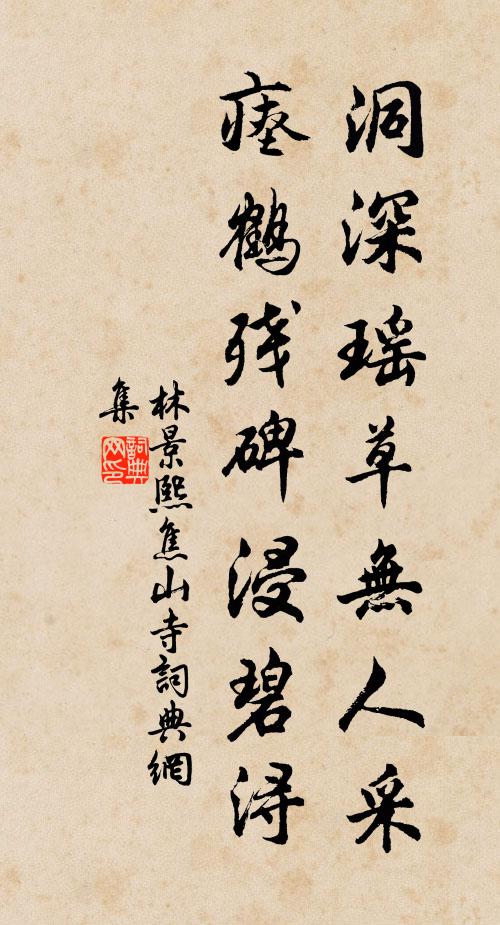 洞深瑶草無人采
瘞鶴残碑浸碧潯
林景熙焦山寺詞典網
集
詞典網印